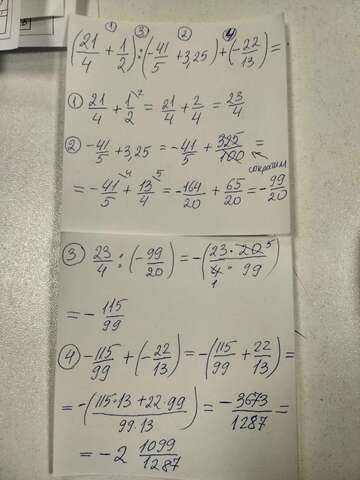 ① ③ ② ④
(21/4 + 1/2) : (-41/5 + 3,25) + (-22/13) =
① 21/4 + 1/2 = 21/4 + 2/4 = 23/4
② -41/5 + 3,25 = -41/5 + 325/100 =
сократим
= -41/5 + 13/4 = -164/20 + 65/20 = -99/20
③ 23/4 : (-99/20) = -(23·20/4·99)
= -115/99
④ -115/99 + (-22/13) = -(115/99 + 22/13) =
= -(115·13 + 22·99/99·13) = -3673/1287 =
= -2 1099/1287